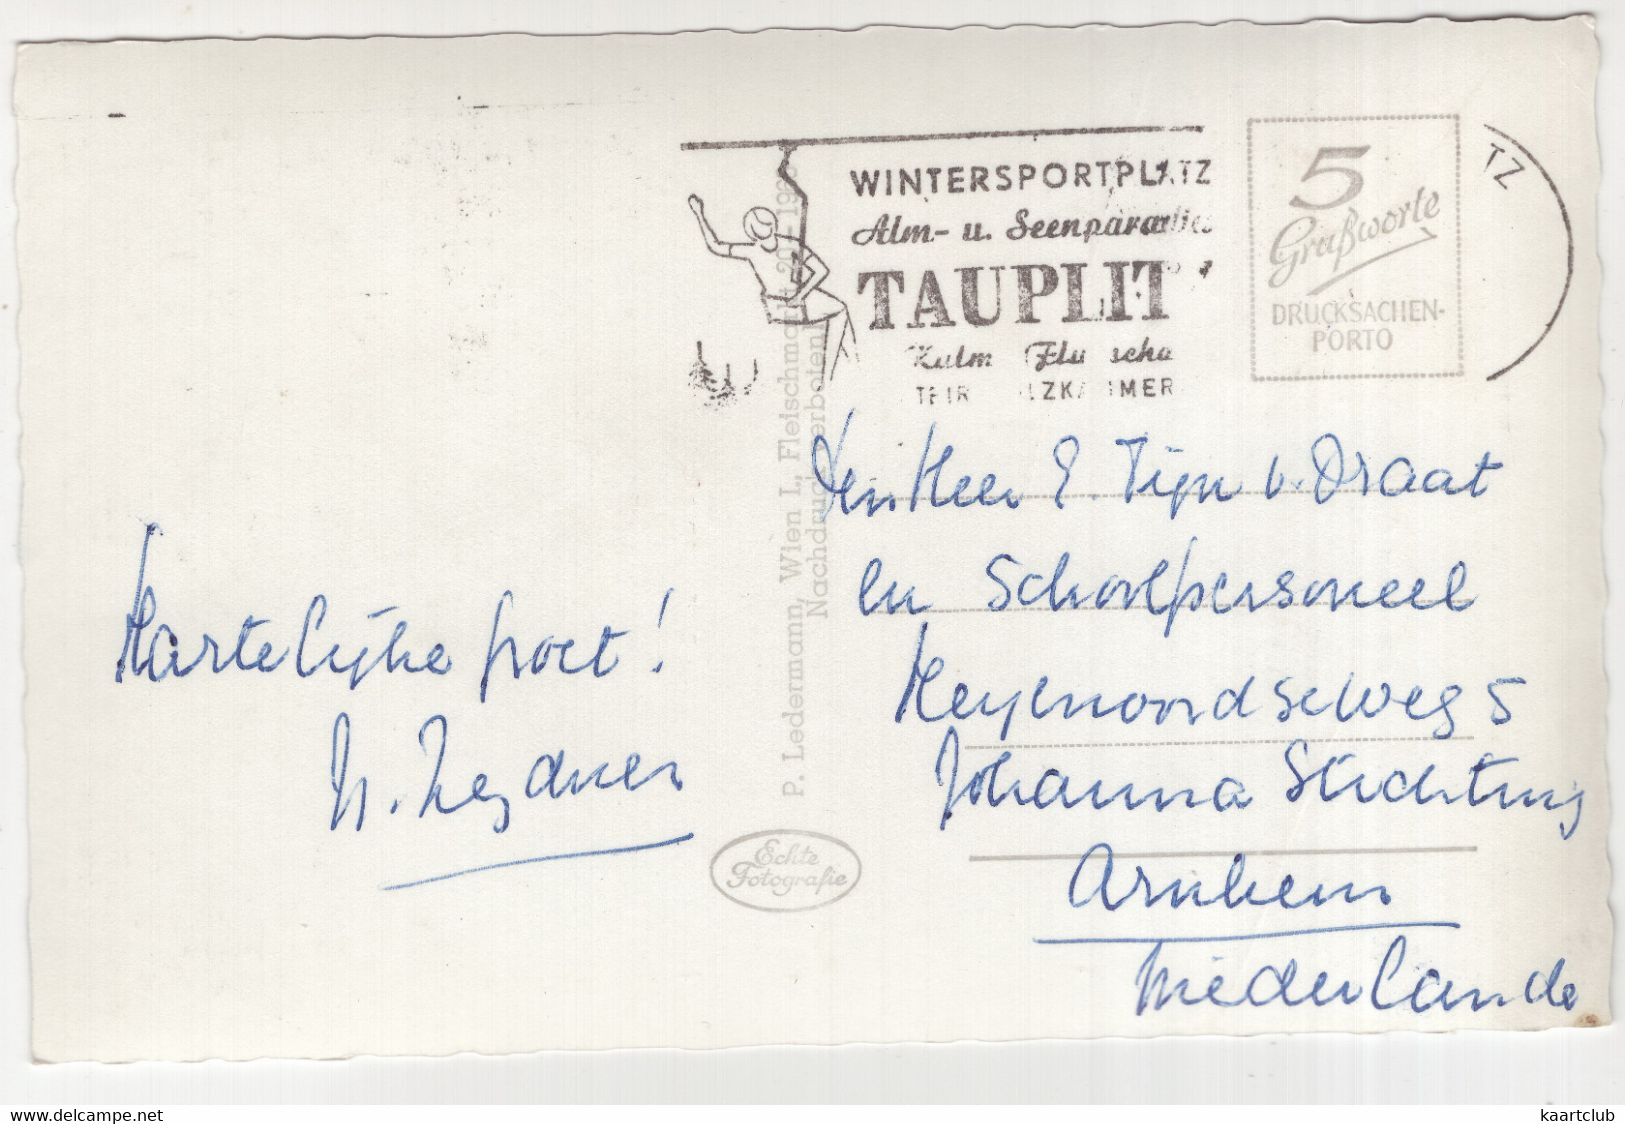 WINTERSPORTPLATZ
Alm- u. Seenparadies
TAUPLIT
Kulm
5
Grußworte
DRUCKSACHEN-
PORTO
TZ
P. Ledermann, Wien I., Fleischmarkt
Nachdruck verboten!
Echte
Fotografie
Hartelijke groet!
Den Heer E. Tijn v. Draat
en Schoolpersoneel
Heijenoordseweg 5
Johanna Stichting
Arnhem
Niederlande
www.delcampe.net
kaartclub